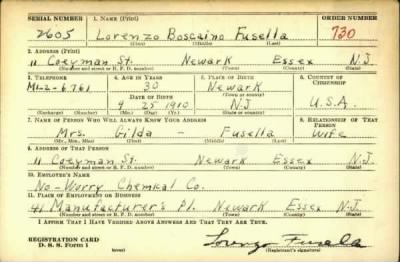 SERIAL NUMBER 1. NAME (Print) ORDER NUMBER
2605 Lorenzo Boscaino Fusella 730
(First) (Middle) (Last)
2. ADDRESS (Print)
11 Coeyman St. Newark Essex N.J.
(Number and street or R. F. D. number) (Town) (County) (State)
3. TELEPHONE 4. AGE IN YEARS 5. PLACE OF BIRTH 6. COUNTRY OF CITIZENSHIP
ML-2-6761 30 Newark
DATE OF BIRTH (Town or county)
9 25 1910 N.J U.S.A.
(Exchange) (Number) (Mo.) (Day) (Yr.) (State or country)
7. NAME OF PERSON WHO WILL ALWAYS KNOW YOUR ADDRESS 8. RELATIONSHIP OF THAT PERSON
Mrs. Gilda - Fusella Wife
(Mr., Mrs., Miss) (First) (Middle) (Last)
9. ADDRESS OF THAT PERSON
11 Coeyman St. Newark Essex N.J.
(Number and street or R. F. D. number) (Town) (County) (State)
10. EMPLOYER'S NAME
No-Worry Chemical Co.
11. PLACE OF EMPLOYMENT OR BUSINESS
41 Manufacturer's Pl. Newark Essex N.J.
(Number and street or R. F. D. number) (Town) (County) (State)
I AFFIRM THAT I HAVE VERIFIED ABOVE ANSWERS AND THAT THEY ARE TRUE.
REGISTRATION CARD
D. S. S. Form 1 (over) Lorenzo Fusella
(Registrant's signature)